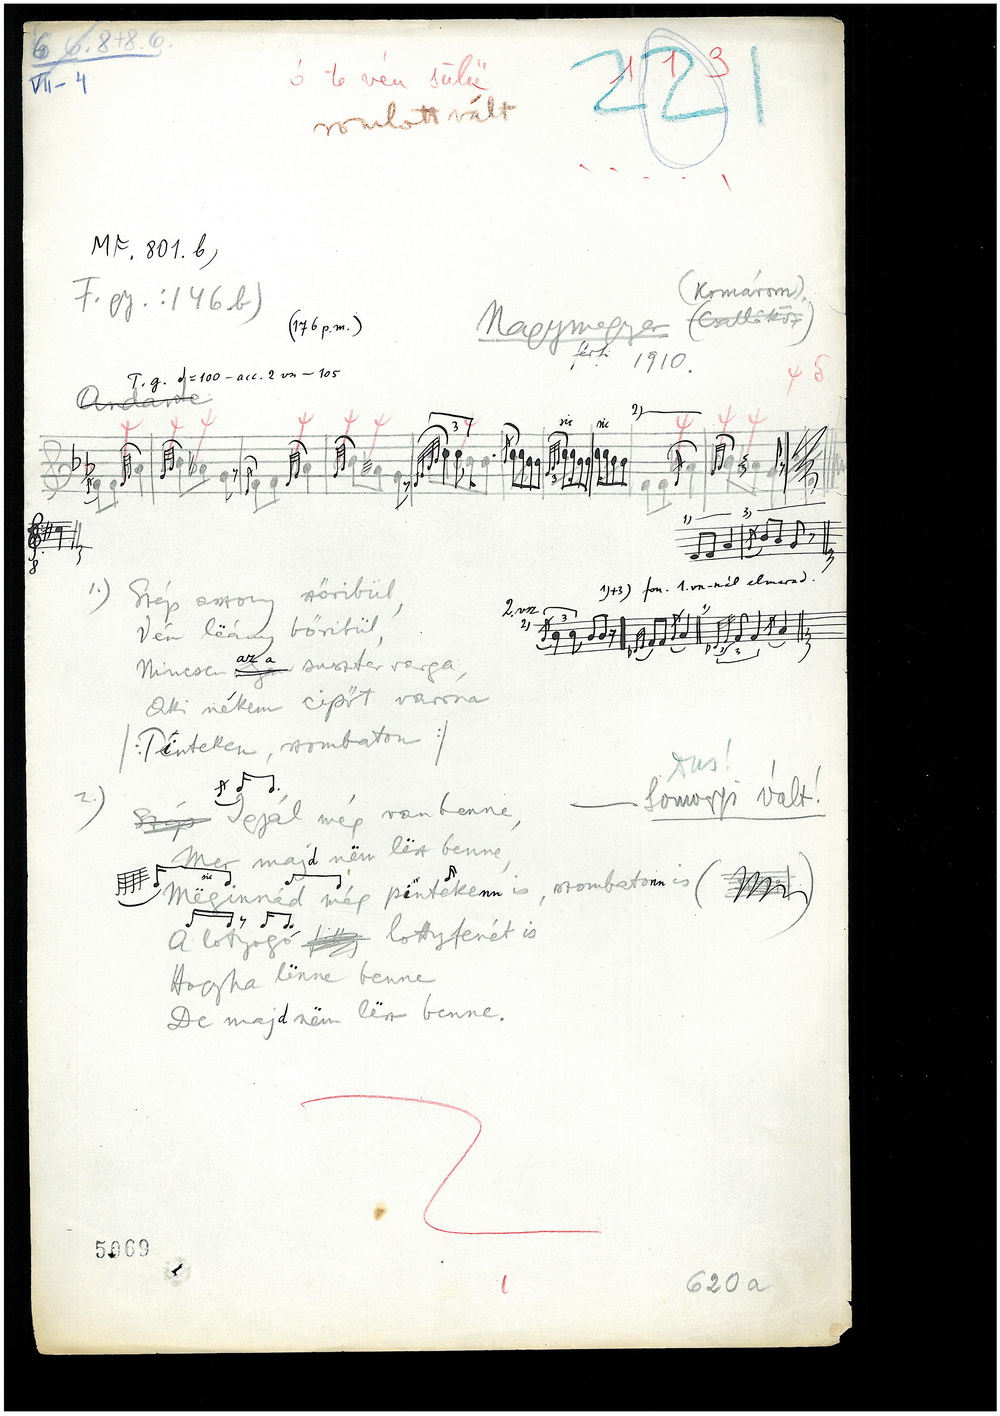 6 6.8+8.6.
VII-4
ó te vén sülü
romlott vált
221
1 1 3
MF. 801. b)
F. gy.: 146 b)
(176 p.m.)
(Komárom)
Nagymegyer (Csallóköz)
férfi 1910.
T. g. ♩=100 - acc. 2 vn - 105
Andante
3
sic
sic
2)
3
1)
3)
1)+3) fon. 1. vn-nál elmarad.
2. vsz
2)
3
3
1.) Szép asszony szőribül,
Vén lëány bőribül,
Nincsen az a suszter varga,
Aki nékem cipőt varrna
|: Pinteken, szombaton :|
2.) Szép Igyál még van benne,
Mer majd nëm lësz benne,
sic
Mëginnád még pintëkenn is, szombatonn is
A lotyogó lottyfenét is
Hogyha lënne benne
De majd nëm lësz benne.
Dus!
Somogyi vált!
5069
1
620a